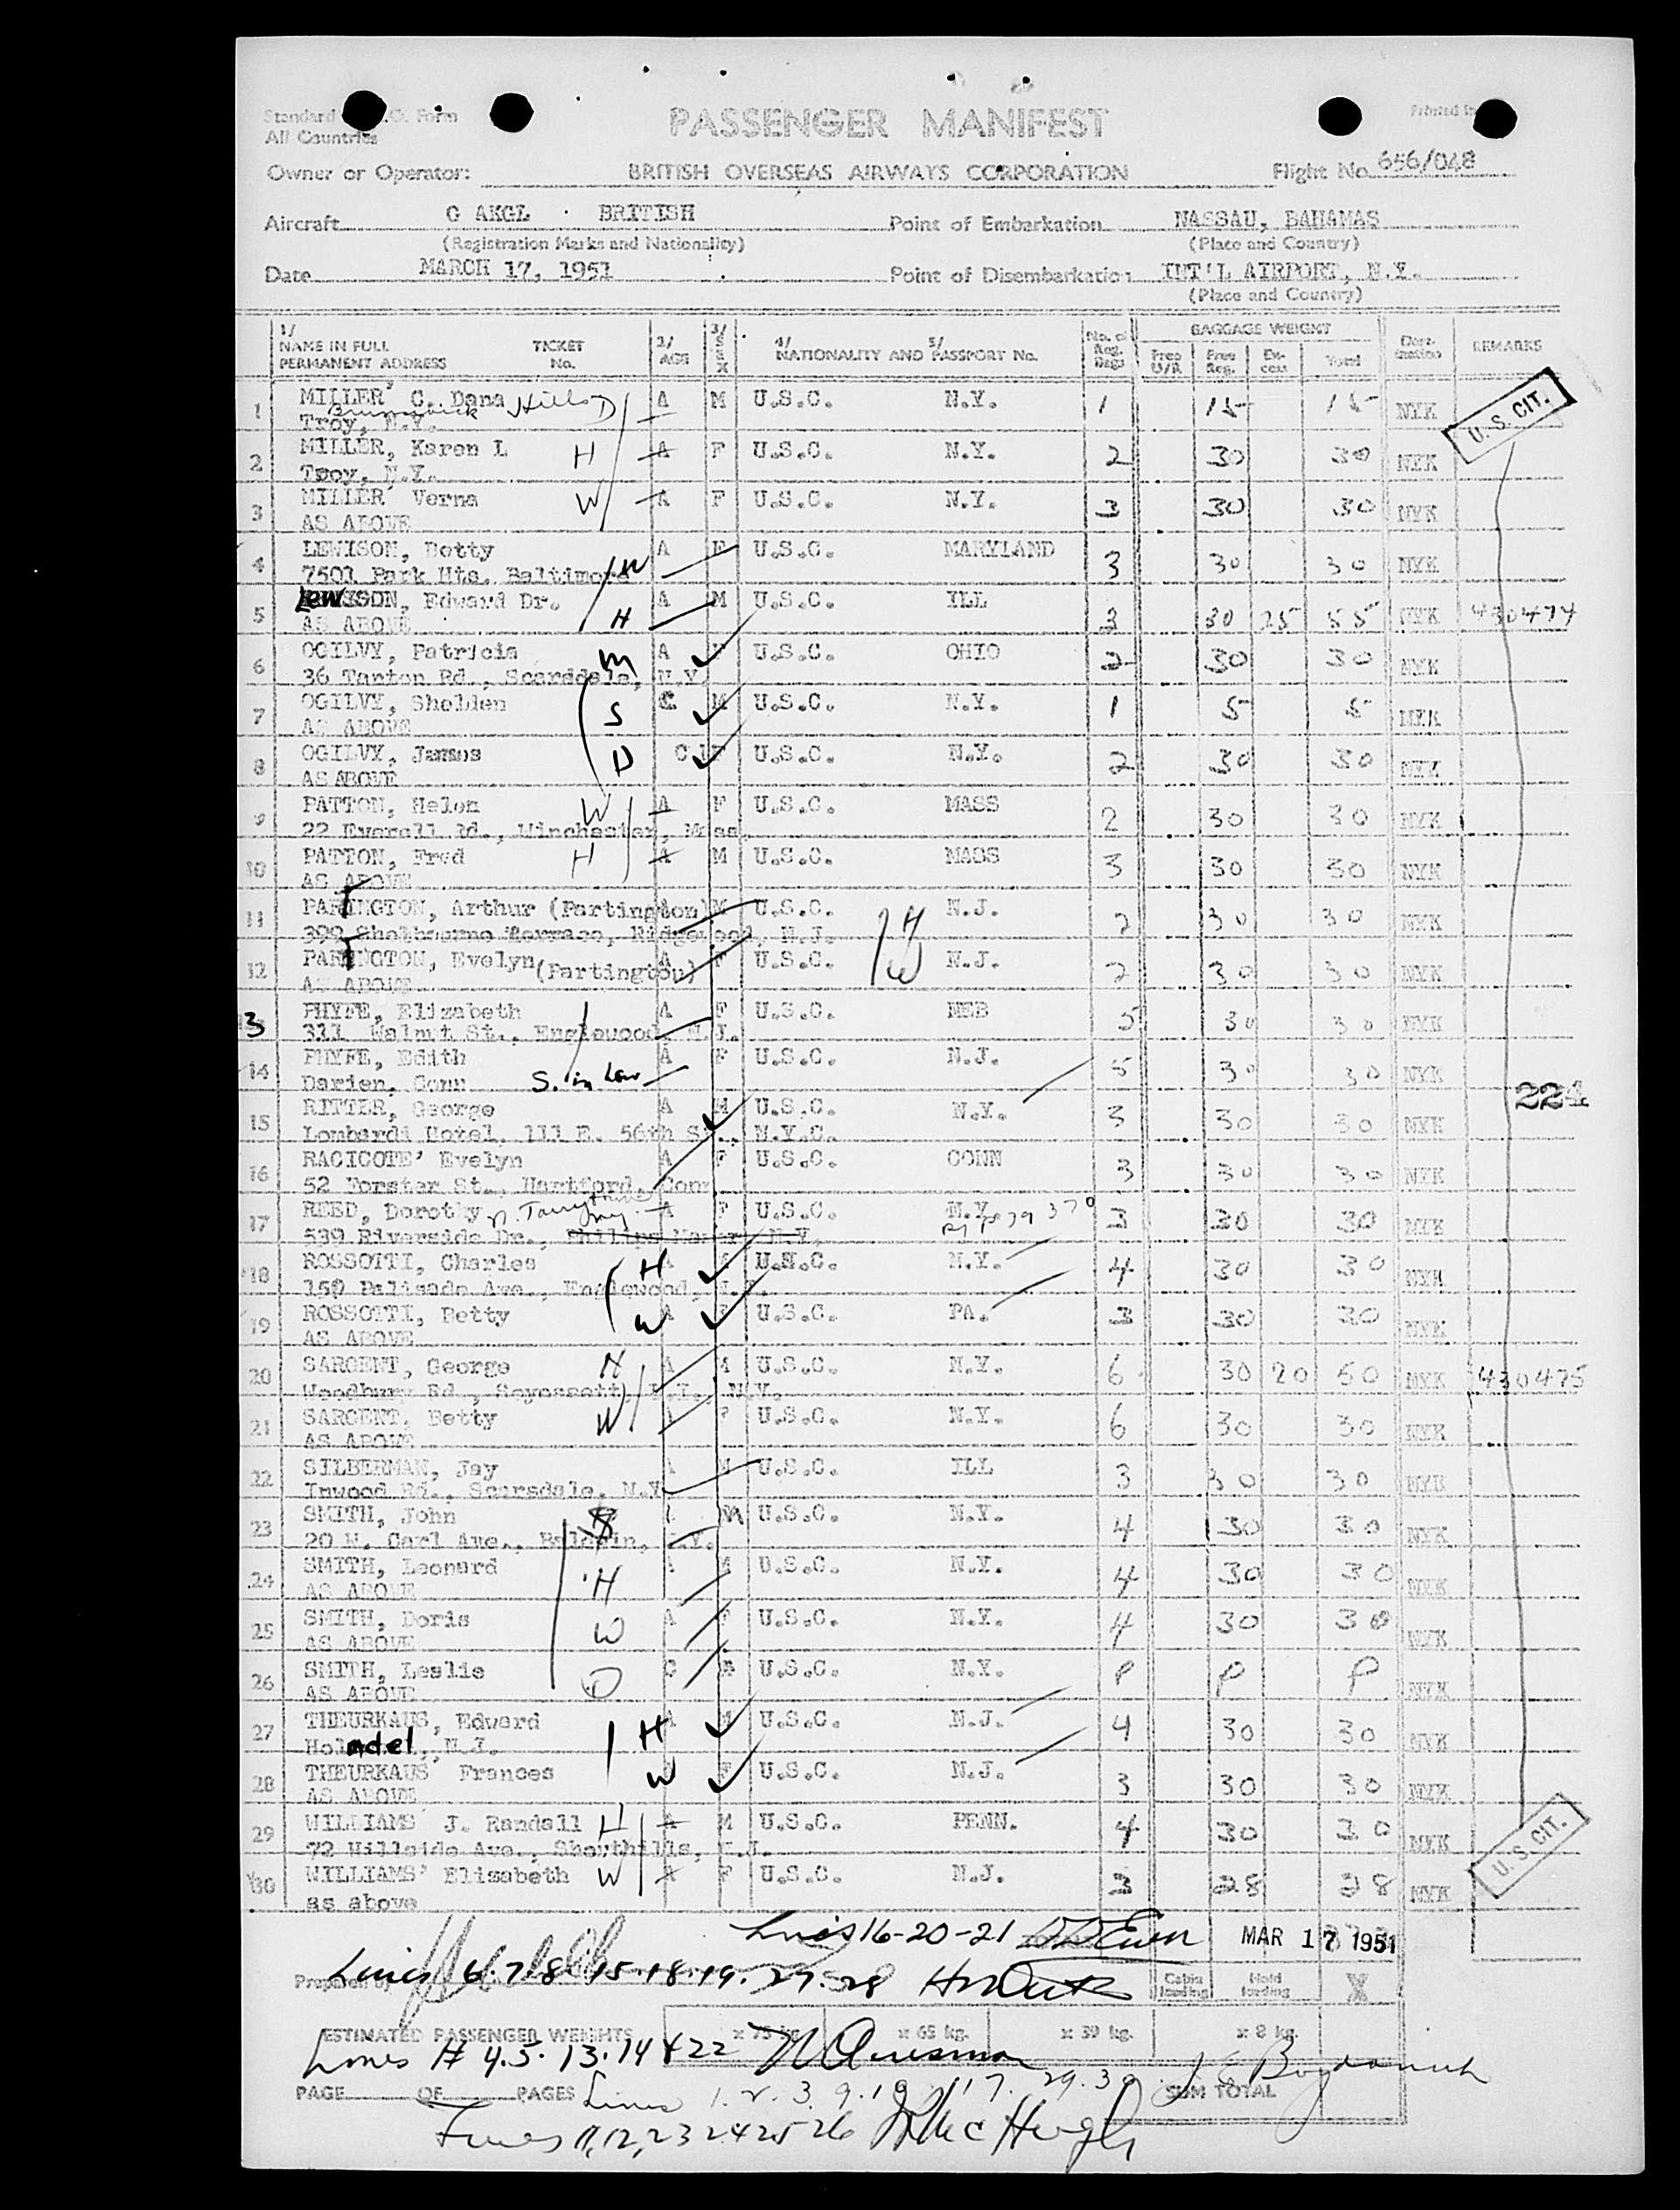 PASSENGER MANIFEST
Standard Form
All Countries
Printed in
Owner or Operator: BRITISH OVERSEAS AIRWAYS CORPORATION Flight No. 656/048
Aircraft G AKGL BRITISH Point of Embarkation NASSAU, BAHAMAS
(Registration Marks and Nationality) (Place and Country)
Date MARCH 17, 1951 Point of Disembarkation INT'L AIRPORT, N.Y.
(Place and Country)
1/ NAME IN FULL PERMANENT ADDRESS TICKET No. 2/ AGE 3/ SEX 4/ 5/ NATIONALITY AND PASSPORT No. No. of Reg. Bags BAGGAGE WEIGHT Free U/R Free Reg. Excess Total Destination REMARKS
1 MILLER' C. Dana D A M U.S.C. N.Y. 1 15 15 NYK U.S. CIT.
Brunswick Hills
Troy, N.Y.
2 MILLER, Karen L H A F U.S.C. N.Y. 2 30 30 NYK
Troy, N.Y.
3 MILLER Verna W A F U.S.C. N.Y. 3 30 30 NYK
AS ABOVE
4 LEWISON, Betty W A F U.S.C. MARYLAND 3 30 30 NYK
7501 Park Hts. Baltimore
5 LEWISON, Edward Dr. H A M U.S.C. ILL 3 30 25 55 NYK 430474
AS ABOVE
6 OGILVY, Patricia M A U.S.C. OHIO 2 30 30 NYK
36 Tarton Rd., Scarddale, N.Y.
7 OGILVY, Shelden S C M U.S.C. N.Y. 1 5 5 NYK
AS ABOVE
8 OGILVY, James D C U.S.C. N.Y. 2 30 30 NYK
AS ABOVE
9 PATTON, Helen W A F U.S.C. MASS 2 30 30 NYK
22 Everell Rd., Winchester, Mass.
10 PATTON, Fred H A M U.S.C. MASS 3 30 30 NYK
AS ABOVE
11 PARTINGTON, Arthur (Partington) M U.S.C. H N.J. 2 30 30 NYK
399 Shelbourne Terrace, Ridgewood, N.J.
12 PARTINGTON, Evelyn (Partington) A F U.S.C. W N.J. 2 30 30 NYK
AS ABOVE
13 PHYFE, Elizabeth A F U.S.C. NEB 5 30 30 NYK
311 Walnut St., Englewood, N.J.
14 PHYFE, Edith A F U.S.C. N.J. 5 30 30 NYK
Darien, Conn S. in Law
224
15 RITTER, George A M U.S.C. N.Y. 3 30 30 NYK
Lombardi Hotel, 111 E. 56th St., N.Y.C.
16 RACICOTE' Evelyn A F U.S.C. CONN 3 30 30 NYK
52 Forster St., Hartford, Conn
17 REED, Dorothy A F U.S.C. N.Y. 3 30 30 NYK
539 Riverside Dr., Philips Manor N.Y. N. Tarrytown N.Y.
18 ROSSOTTI, Charles H A U.S.C. N.Y. 4 30 30 NYK
150 Palisade Ave., Englewood, N.J.
19 ROSSOTTI, Betty W A F U.S.C. PA. 3 30 30 NYK
AS ABOVE
20 SARGENT, George H A M U.S.C. N.Y. 6 30 20 50 NYK 430475
Woodbury Rd., Soyossett, L.I., N.Y.
21 SARGENT, Betty W A F U.S.C. N.Y. 6 30 30 NYK
AS ABOVE
22 SILBERMAN, Jay A M U.S.C. ILL 3 30 30 NYK
Inwood Rd., Scarsdale, N.Y.
23 SMITH, John S M U.S.C. N.Y. 4 30 30 NYK
20 W. Carl Ave., Baldwin, N.Y.
24 SMITH, Leonard H A M U.S.C. N.Y. 4 30 30 NYK
AS ABOVE
25 SMITH, Doris W A F U.S.C. N.Y. 4 30 30 NYK
AS ABOVE
26 SMITH, Leslie D C U.S.C. N.Y. P P P NYK
AS ABOVE
27 THEURKAUS, Edward H A M U.S.C. N.J. 4 30 30 NYK
Holmdel, N.J.
28 THEURKAUS' Frances W F U.S.C. N.J. 3 30 30 NYK
AS ABOVE
29 WILLIAMS J. Randall H A M U.S.C. PENN. 4 30 30 NYK
72 Hillside Ave., Shorthills, N.J.
30 WILLIAMS' Elizabeth W A F U.S.C. N.J. 3 28 28 NYK U.S. CIT.
as above
Lines 16-20-21 MAR 17 1951
Lines 6.7.8.15.18.19.27.28
Prepared by Cabin loading Hold loading X
ESTIMATED PASSENGER WEIGHTS x 75 kg. x 65 kg. x 39 kg. x 8 kg.
Lines # 4.5.13.14 & 22
PAGE OF PAGES Lines 1.2.3.9.10 17.29.30 SUM TOTAL
Lines 11,12,23 24 25 26 McHugh